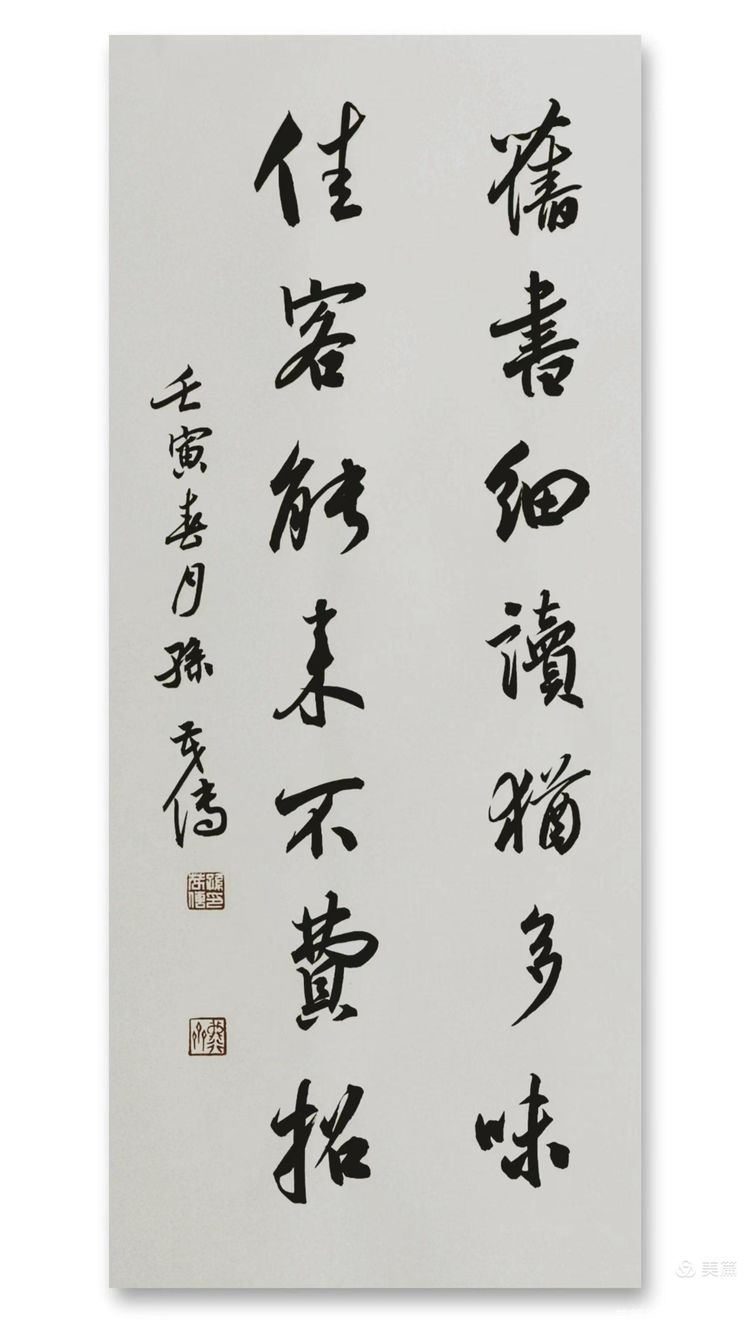 舊書細讀猶多味
佳客能来不費招
壬寅春月孫茂傳
美篇